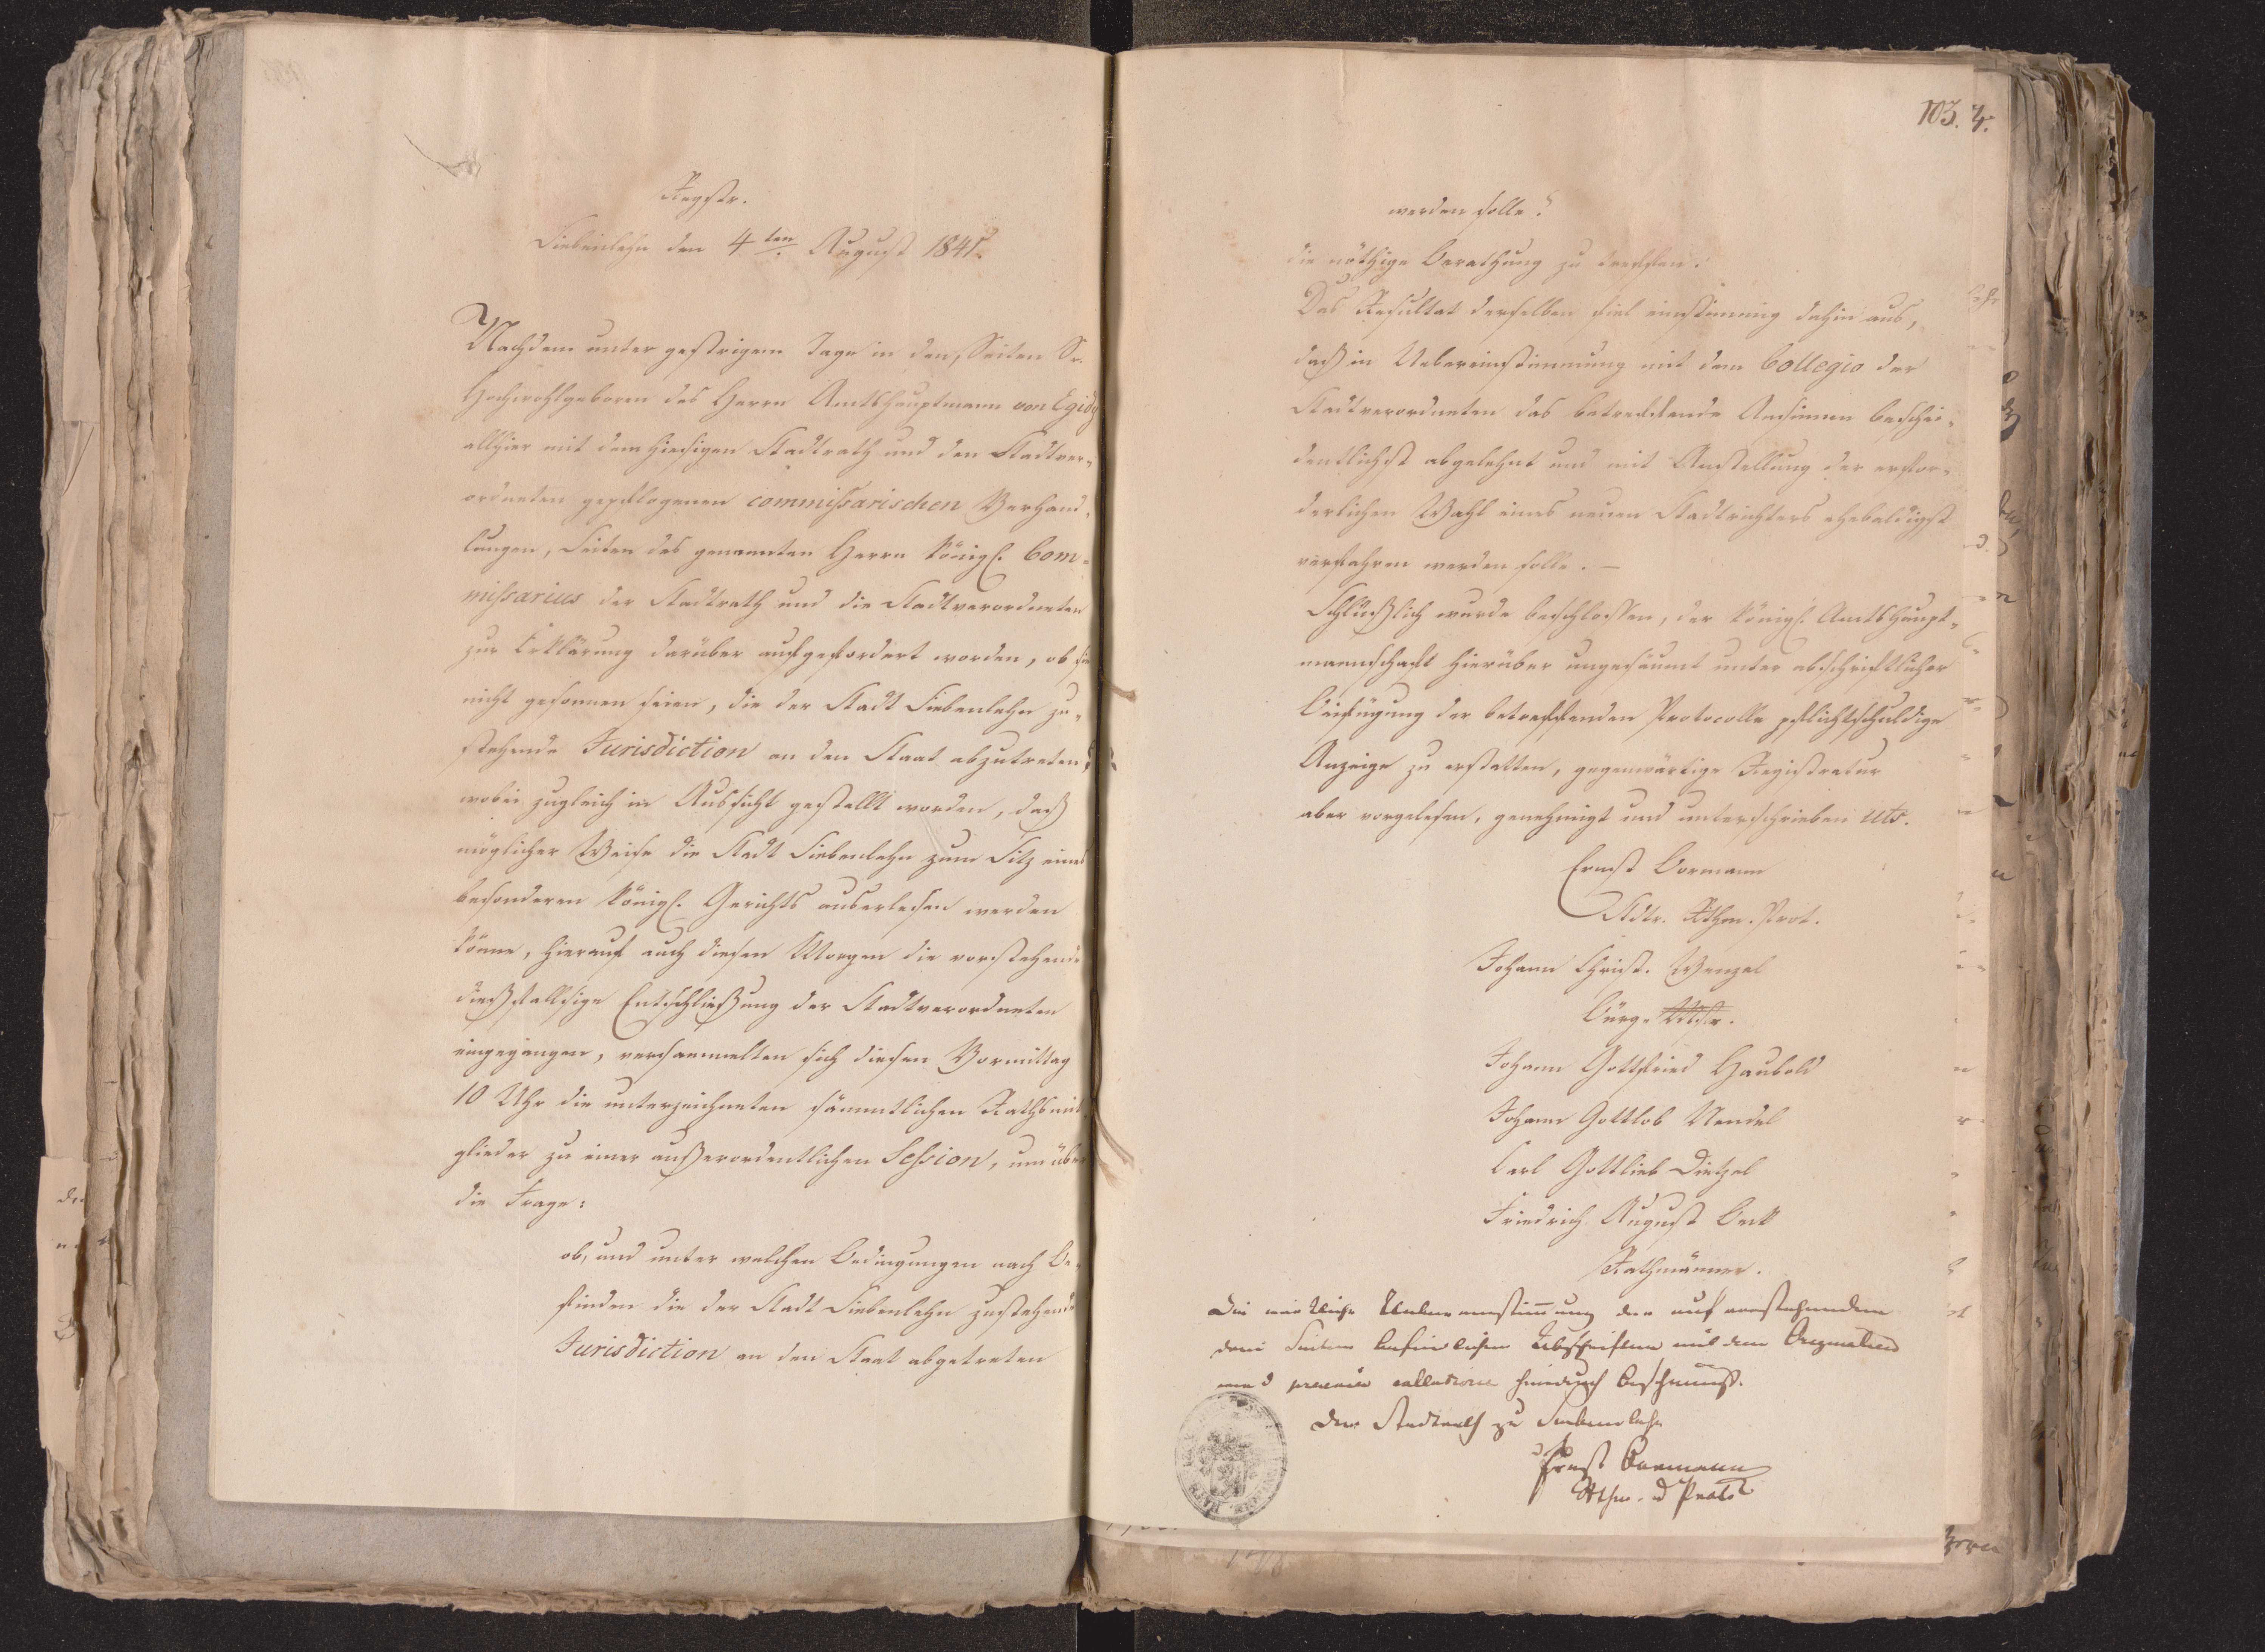 Regstr.
Siebenlehn den 4ten August 1841.
Nachdem unter gestrigem Tage in den, Seiten Sr.
Hochwohlgeboren des Herrn Amtshauptmann von Egidy
allhier mit dem hiesigen Stadtrath und den Stadtver-
ordneten gepflogenen commissarischen Verhand-
lungen, Seiten des genannten Herrn Königl. Com-
missarius der Stadtrath und die Stadtverordneten
zur Erklärung darüber aufgefordert worden, ob sie
nicht gesonnen seien, die der Stadt Siebenlehn zu-
stehende Jurisdiction an den Staat abzutreten,
wobei zugleich in Aussicht gestellt worden, daß
möglicher Weise die Stadt Siebenlehn zum Sitz eines
besonderen Königl. Gerichts auserlesen werden
könne, hierauf auch diesen Morgen die vorstehende
dießfallsige Entschließung der Stadtverordneten
eingegangen, versammelten sich diesen Vormittag
10 Uhr die unterzeichneten sämmtlichen Rathsmit
glieder zu einer außerordentlichen Session, um über
die Frage:
ob, und unter welchen Bedingungen nach Be-
finden die der Stadt Siebenlehn zustehende
Jurisdiction an den Staat abgetreten
103. 4.
werden solle?
die nöthige Berathung zu treffen.
Das Resultat derselben fiel einstimmig dahin aus,
daß in Uebereinstimmung mit dem Collegio der
Stadtverordneten das betreffende Ansinnen beschei-
dentlichst abgelehnt und mit Anstellung der erfor-
derlichen Wahl eines neuen Stadtrichters ehebaldigst
verfahren werden solle. —
Schlüßlich wurde beschlossen, der Königl. Amtshaupt-
mannschaft hierüber ungesäumt unter abschriftlicher
Beifügung der betreffenden Protocolle pflichtschuldige
Anzeige zu erstatten, gegenwärtige Registratur
aber vorgelesen, genehmigt und unterschrieben uts.
Ernst Bormann
Stdtr. Rthm. Prot.
Johann Christ. Wenzel
Bürg. Mstr.
Johann Gottfried Haubold
Johann Gottlob Nendel
Carl Gottlieb Dietzel
Friedrich August Beck
Rathmänner.
Die wörtliche Uebereinstimmung der auf vorstehenden
drei Seiten befindlichen Abschriften mit den Originalien
wird praevia collatione hierdurch bescheinigt.
Der Stadtrath zu Siebenlehn
Ernst Bormann
Rthm. u Prot.